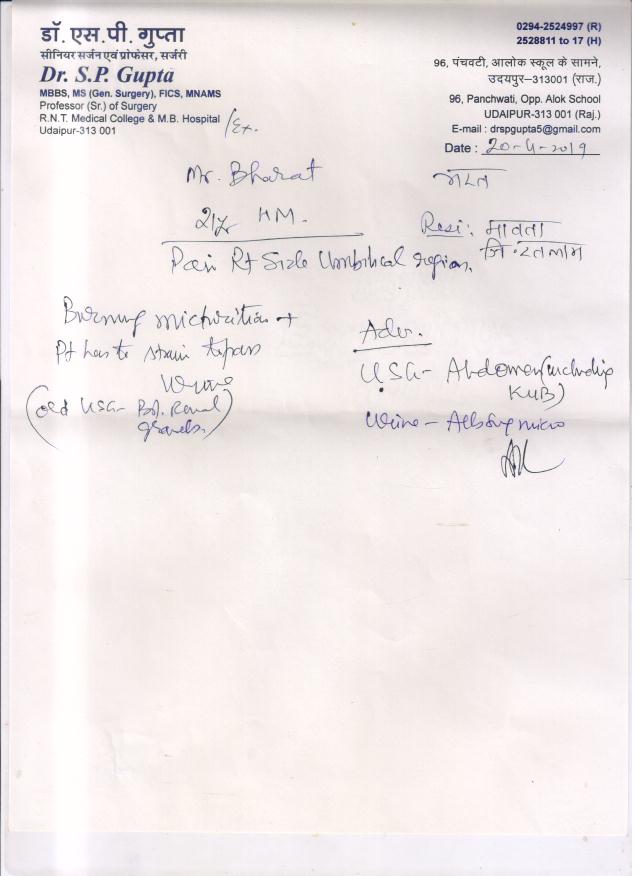 डॉ. एस.पी. गुप्ता
सीनियर सर्जन एवं प्रोफेसर, सर्जरी
Dr. S.P. Gupta
MBBS, MS (Gen. Surgery), FICS, MNAMS
Professor (Sr.) of Surgery
R.N.T. Medical College & M.B. Hospital /Ex.
Udaipur-313 001
0294-2524997 (R)
2528811 to 17 (H)
96, पंचवटी, आलोक स्कूल के सामने,
उदयपुर-313001 (राज.)
96, Panchwati, Opp. Alok School
UDAIPUR-313 001 (Raj.)
E-mail : drspgupta5@gmail.com
Date : 20-4-2019
Mr. Bharat
भरत
21yr HM.
Resi: मावता
जि. रतलाम
Pain Rt Side Umbilical region.
Burning micturition +
Pt has to strain to pass
Urine
(old USG- Bil. Renal
gravels.)
Adv.
USG- Abdomen (including
KUB)
Urine - Alb Sug micro